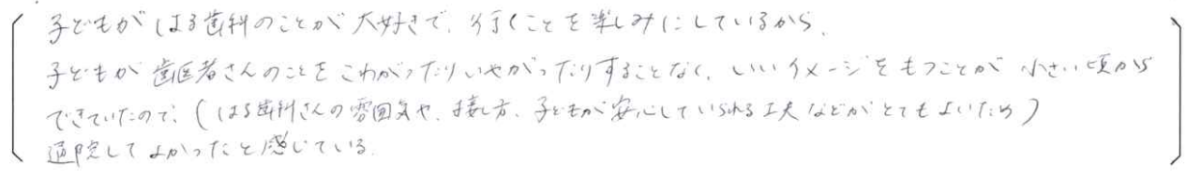 子どもがはる歯科のことが大好きで、行くことを楽しみにしているから、
子どもが歯医者さんのことをこわがったりいやがったりすることなく、いいイメージをもつことが小さい頃から
できていたので、(はる歯科さんの雰囲気や、接し方、子どもが安心していられる工夫などがとてもよいため)
通院してよかったと感じている。